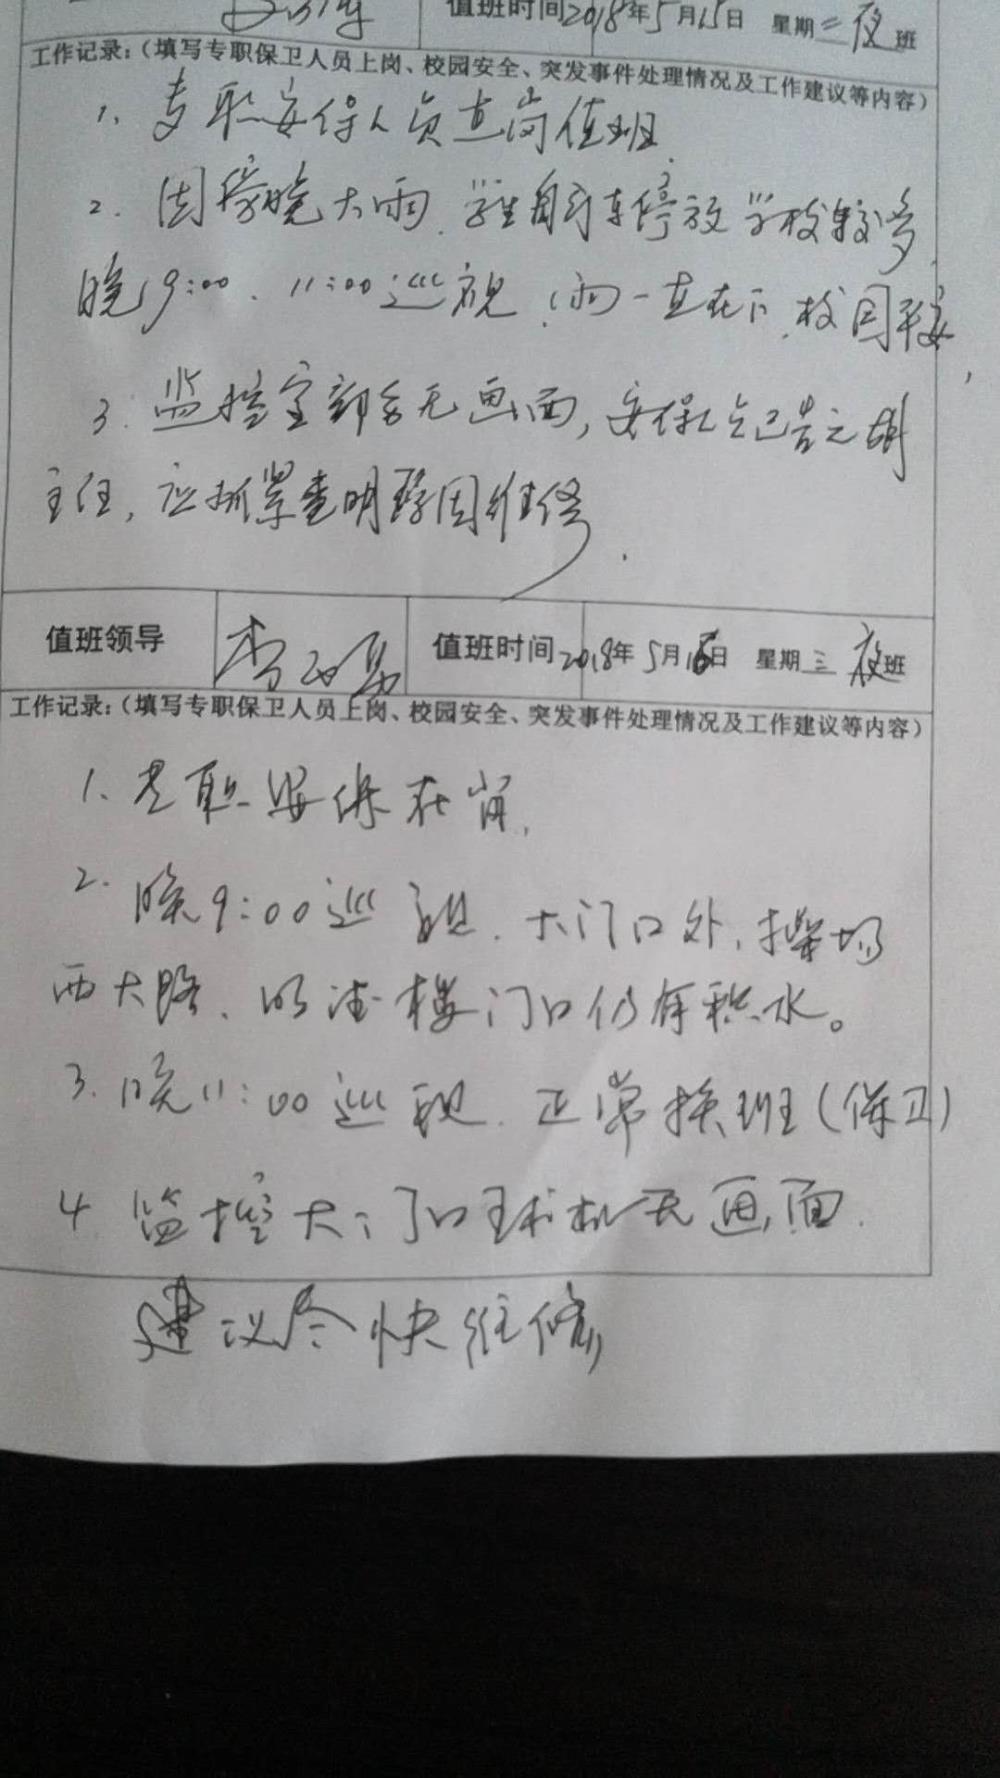 值班时间2018年5月15日 星期二夜班
工作记录:(填写专职保卫人员上岗、校园安全、突发事件处理情况及工作建议等内容)
1、专职安保人员在岗值班
2. 因傍晚大雨.学生自行车停放学校较多,
晚9:00、11:00巡视,雨一直在下.校园平安,
3.监控室部分无画面,安保人员已告之胡
主任,应抓紧查明原因维修.
值班领导 李 值班时间2018年5月16日 星期三夜班
工作记录:(填写专职保卫人员上岗、校园安全、突发事件处理情况及工作建议等内容)
1、专职安保在岗,
2.晚9:00巡视.大门口外,操场
西大路、明德楼门口仍有积水。
3.晚11:00巡视.正常换班(保卫)
4 监控大门口球机无画面.
建议尽快维修,